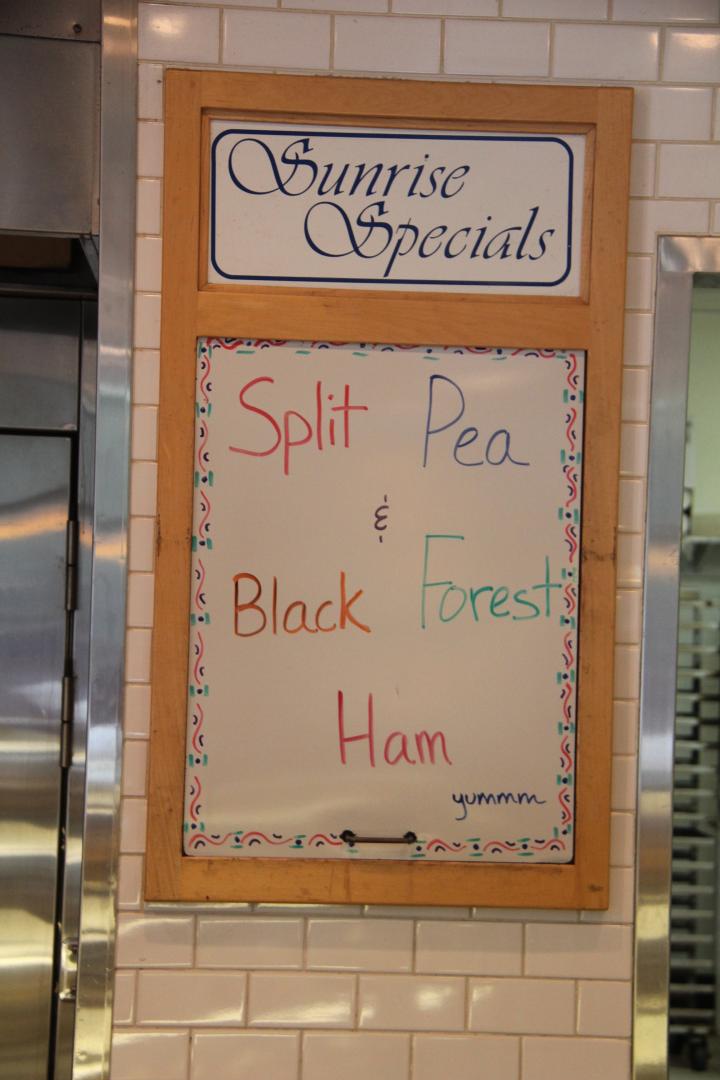 Sunrise
Specials
Split Pea
&
Black Forest
Ham
yummm